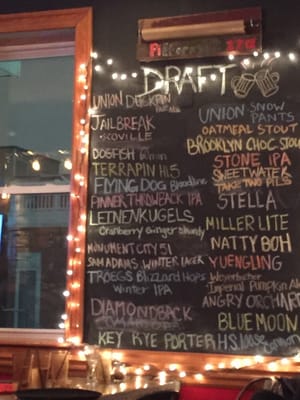 DRAFT
UNION DUCKPIN
Pale Ale
JAILBREAK
SCOVILLE
DOGFISH
TERRAPIN Hi5
FLYING DOG Bloodline
PINNER THROWBACK IPA
LEINENKUGELS
Cranberry Ginger Shandy
MONUMENT CITY 51
SAM ADAMS WINTER LAGER
TROEGS Blizzard of Hops
Winter IPA
DIAMONDBACK
KEY RYE PORTER
UNION SNOW
PANTS
OATMEAL STOUT
BROOKLYN CHOC STOU
STONE IPA
SWEETWATER
TAKE TWO PILS
STELLA
MILLER LITE
NATTY BOH
YUENGLING
Weyerbacher
Imperial Pumpkin Ale
ANGRY ORCHARD
BLUE MOON
H.S. loose
Cannon